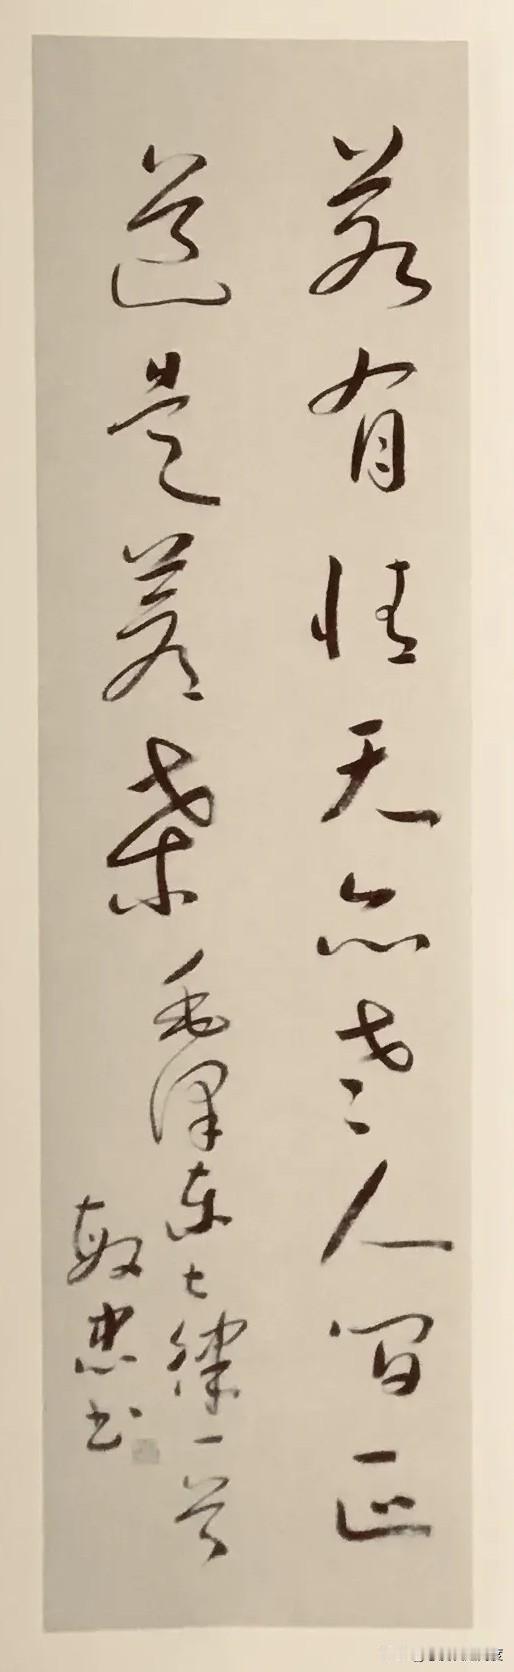 若有情天亦老人间正
道是苍桑
毛泽东七律一首
敏忠书